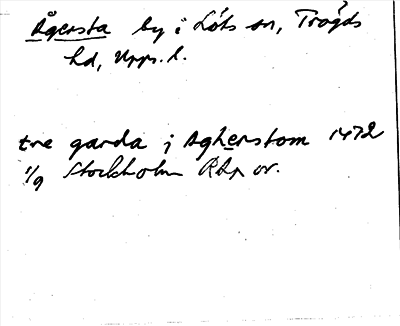 Ågersta by i Löts sn, Trögds
hd, Upps. l.
tre garda j Agherstom 1472
1/9 Stockholm RAp or.